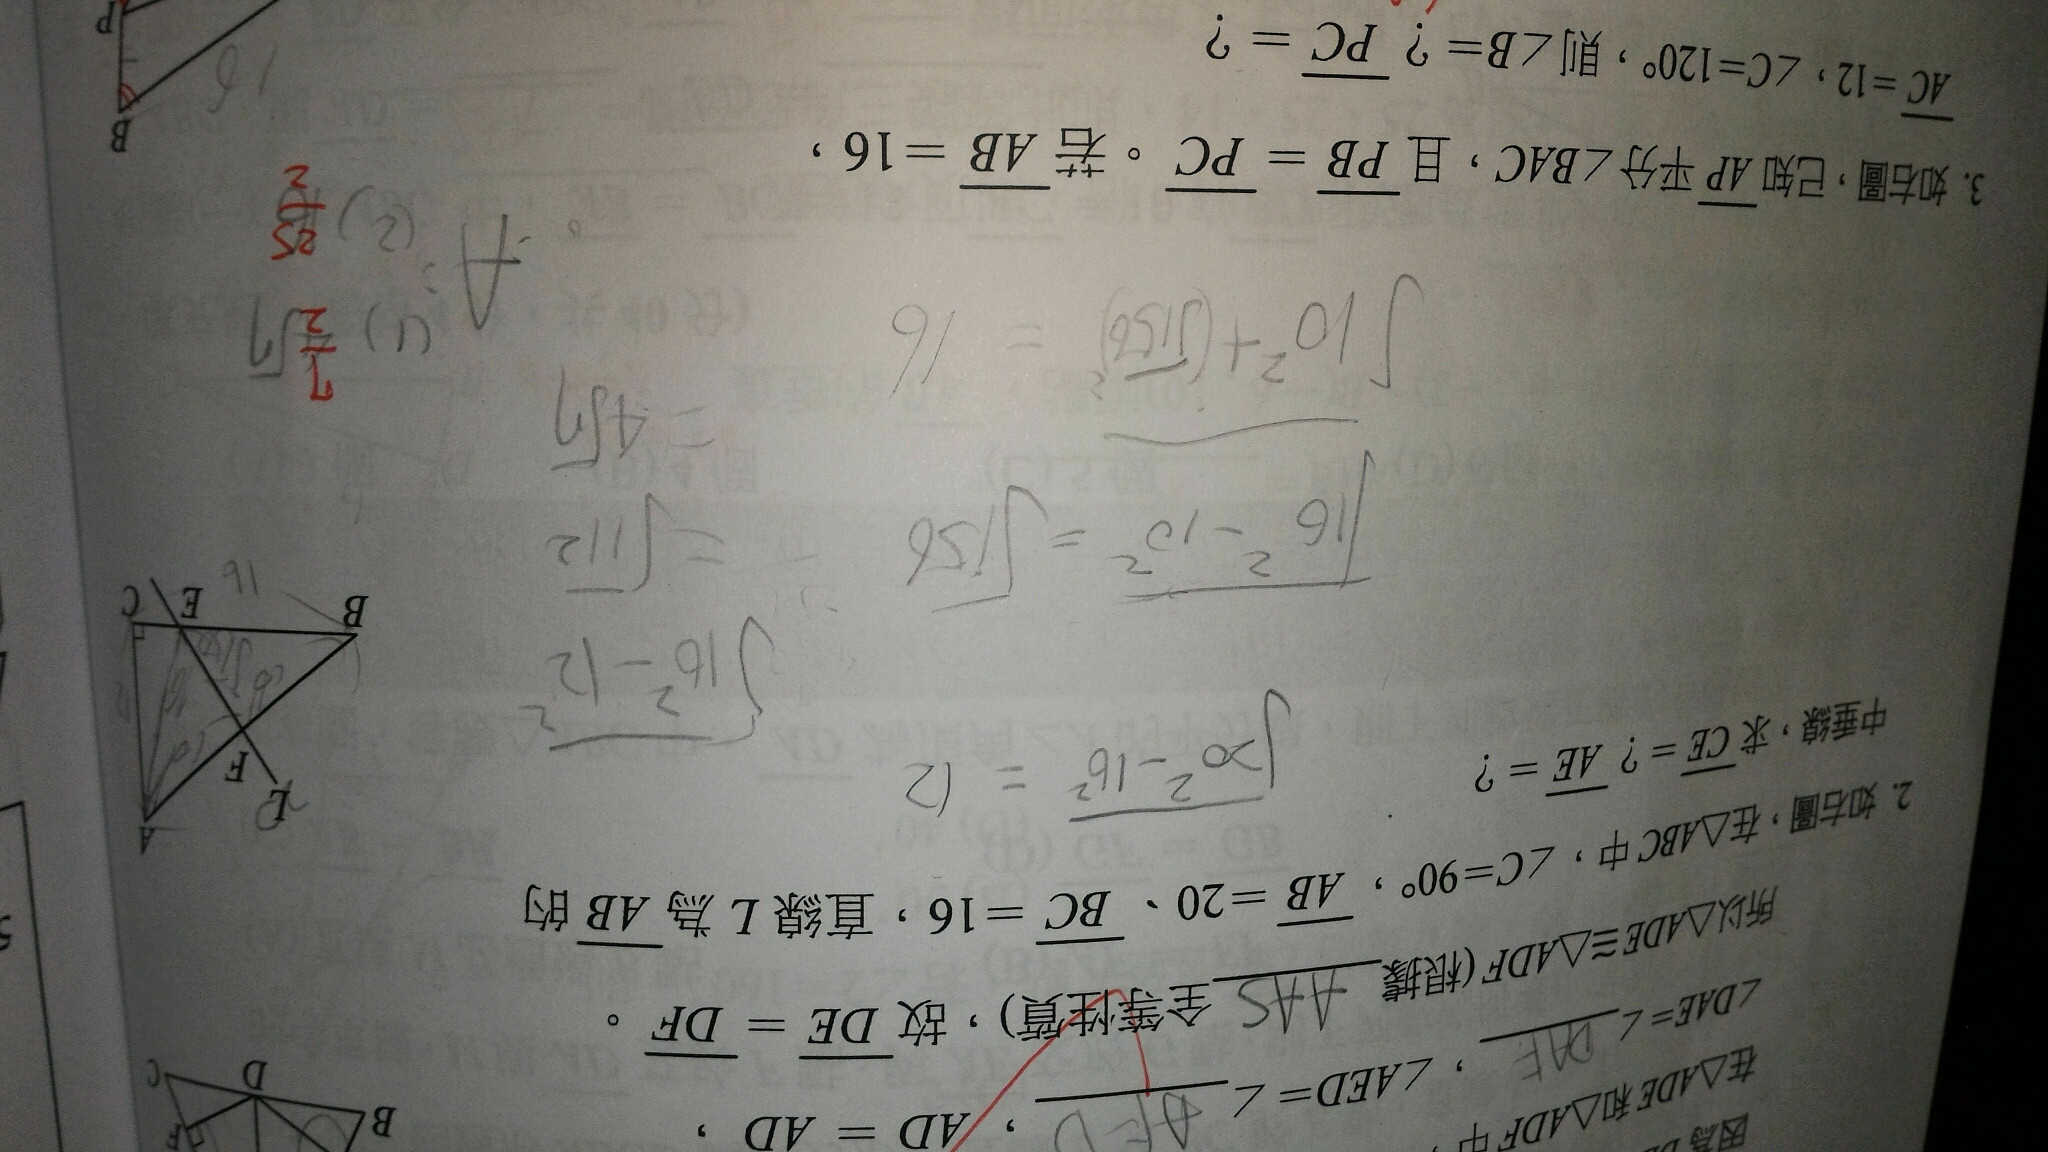 在△ADE和△ADF中，
∠DAE=∠DAF，∠AED=∠AFD，AD = AD，
所以△ADE≅△ADF(根據 AAS 全等性質)，故 DE = DF。
B
D
C
F
2. 如右圖，在△ABC中，∠C=90°，AB=20、BC=16，直線 L 為 AB 的
中垂線，求 CE = ? AE = ?
√20²-16² = 12
√16²-12²
√16²-10² = √156
= √112
= 4√7
√10²+(√156)² = 16
A:
(1)
7/2
(2)
25/2
A
L
F
10
16
B
E
C
16
3. 如右圖，已知 AP 平分∠BAC，且 PB = PC。若 AB = 16，
AC =12，∠C=120°，則∠B= ? PC = ?
B
P
16
5